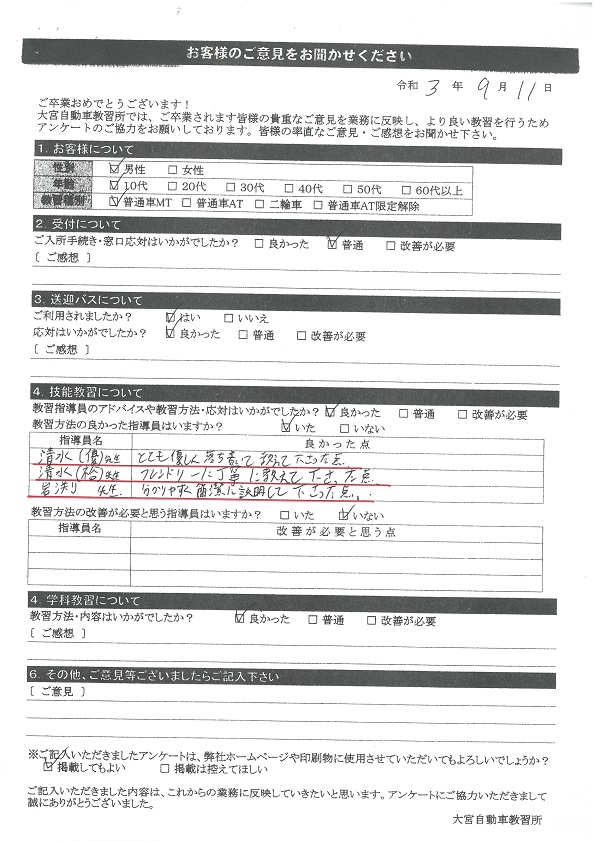 お客様のご意見をお聞かせください
令和 3 年 9 月 11 日
ご卒業おめでとうございます！
大宮自動車教習所では、ご卒業されます皆様の貴重なご意見を業務に反映し、より良い教習を行うため
アンケートのご協力をお願いしております。皆様の率直なご意見・ご感想をお聞かせ下さい。
1. お客様について
性別 ☑男性 □女性
年齢 ☑10代 □20代 □30代 □40代 □50代 □60代以上
教習種別 ☑普通車MT □普通車AT □二輪車 □普通車AT限定解除
2. 受付について
ご入所手続き・窓口応対はいかがでしたか？ □良かった ☑普通 □改善が必要
〔 ご感想 〕
3. 送迎バスについて
ご利用されましたか？ ☑はい □いいえ
応対はいかがでしたか？ ☑良かった □普通 □改善が必要
〔 ご感想 〕
4. 技能教習について
教習指導員のアドバイスや教習方法・応対はいかがでしたか？ ☑良かった □普通 □改善が必要
教習方法の良かった指導員はいますか？ ☑いた □いない
指導員名 良かった点
清水(優)先生 とても優しく落ち着いて教えて下さった点
清水(裕)先生 フレンドリーに丁寧に教えて下さった点
岩渕り 先生 分かりやすく簡潔に説明して下さった点。
教習方法の改善が必要と思う指導員はいますか？ □いた ☑いない
指導員名 改善が必要と思う点
4. 学科教習について
教習方法・内容はいかがでしたか？ ☑良かった □普通 □改善が必要
〔 ご感想 〕
6. その他、ご意見等ございましたらご記入下さい
〔 ご意見 〕
※ご記入いただきましたアンケートは、弊社ホームページや印刷物に使用させていただいてもよろしいでしょうか？
☑掲載してもよい □掲載は控えてほしい
ご記入いただきました内容は、これからの業務に反映していきたいと思います。アンケートにご協力いただきまして
誠にありがとうございました。
大宮自動車教習所